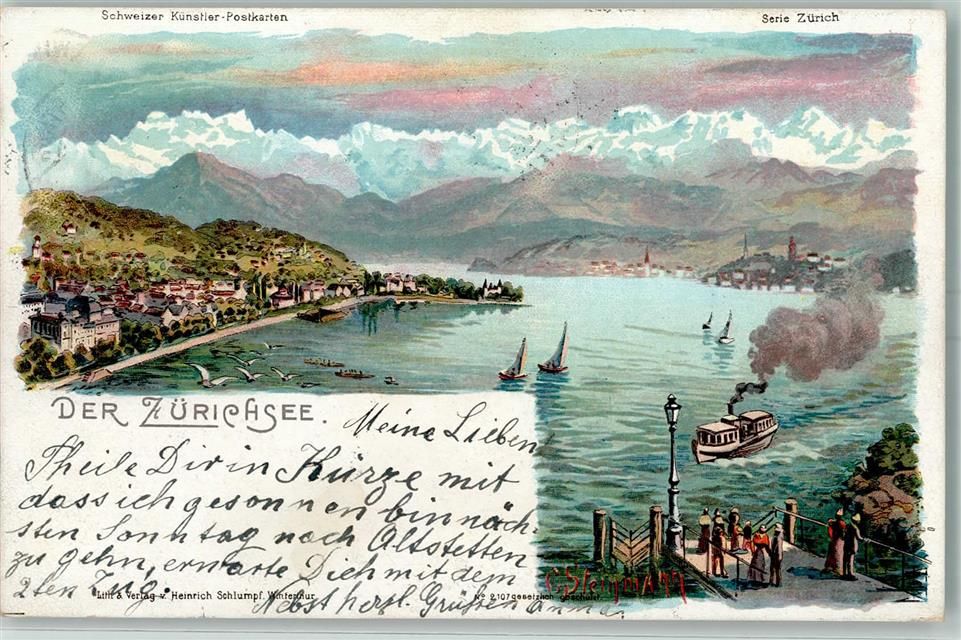 Schweizer Künstler-Postkarten
Serie Zürich
DER ZÜRICHSEE.
Meine Lieben
Theile Dir in Kürze mit
dass ich gesonnen bin näch-
sten Sonntag nach Altstetten
zu gehn, erwarte Dich mit dem
2ten Zug
Nebst herzl. Grüssen Anna
C. Steinmann
Lith & Verlag v. Heinrich Schlumpf. Winterthur.
No 2107 gesetzlich geschützt.